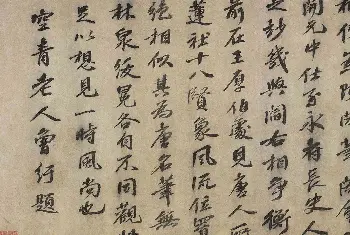 開元中仕至永長史人
妙與閻右相爭衡
前在王厚伯處見唐人
蓮社十八賢象風流位置
絕相似其為唐名筆無
林泉綬冕各有不同觀
足以想見一時風尚也
空青老人曾紆題